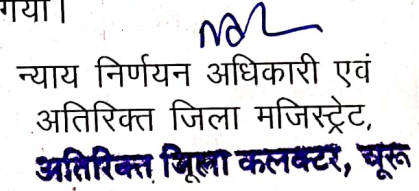 गया।
न्याय निर्णयन अधिकारी एवं
अतिरिक्त जिला मजिस्ट्रेट,
अतिरिक्त जिला कलक्टर, चूरू